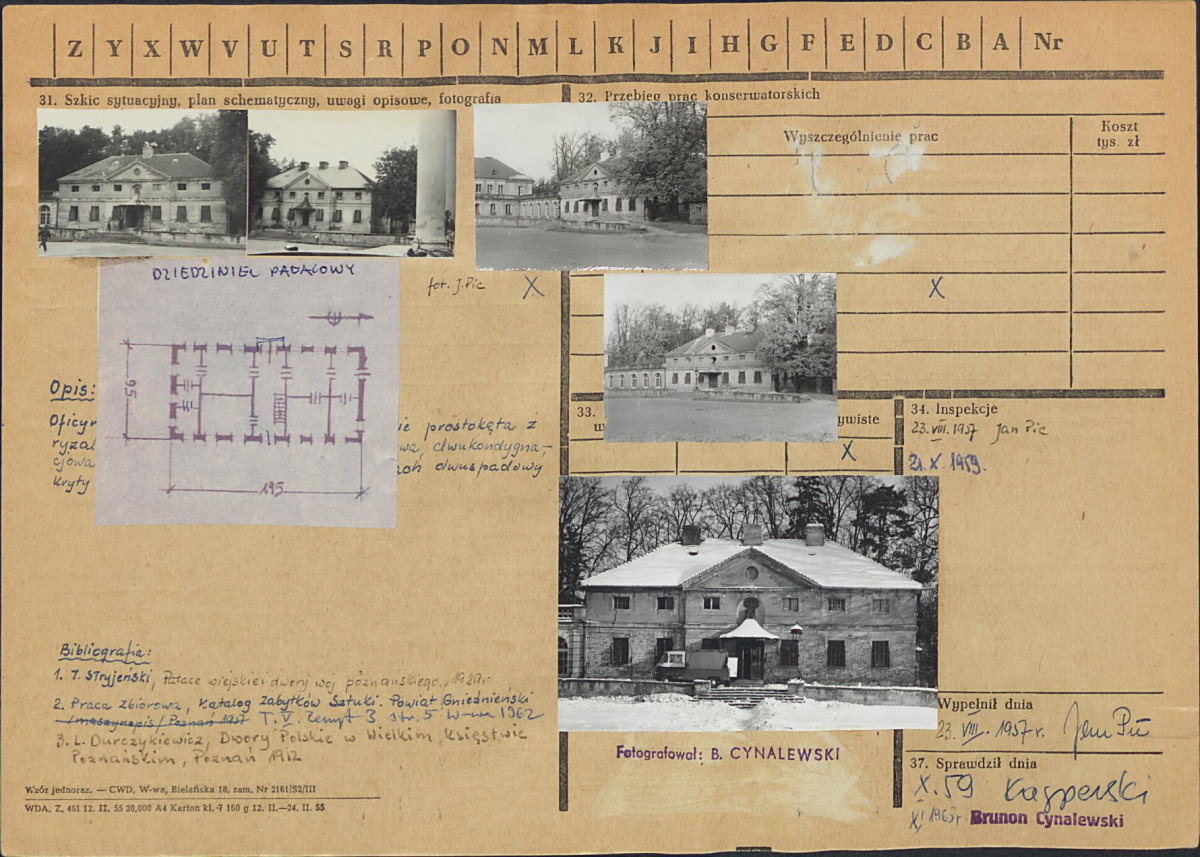 Z Y X W V U T S R P O N M L K J I H G F E D C B A Nr
31. Szkic sytuacyjny, plan schematyczny, uwagi opisowe, fotografia
32. Przebieg prac konserwatorskich
Wyszczególnienie prac
Koszt
tys. zł
DZIEDZINIEC PAŁACOWY
fot. J. Pic X
X
95
195
Opis:
Oficyn
ie prostokąta z
ryzal
wa, dwukondygna-
cjowa
ach dwuspadowy
kryty
33.
w
ywiste
X
34. Inspekcje
23. VIII. 1957 Jan Pic
21. X. 1959.
Bibliografia:
1. T. Stryjeński, Pałace wiejskie i dwory woj. poznańskiego, 1929r
2. Praca zbiorowa, Katalog Zabytków Sztuki. Powiat Gnieźnieński
/maszynopis/ Poznań 1957 T. V. Zeszyt 3 str. 5 W-wa 1962
3. L. Durczykiewicz, Dwory Polskie w Wielkim Księstwie
Poznańskim, Poznań 1912
Wzór jednoraz. — CWD, W-wa, Bielańska 18, zam. Nr 2161/S2/III
WDA. Z. 461 12. II. 55 20,000 A4 Karton kl. 7 160 g 12. II.—24. II. 55
Fotografował: B. CYNALEWSKI
Wypełnił dnia
23. VIII. 1957 r. Jan Pic
37. Sprawdził dnia
X. 59 Kasperski
XI 1963r. Brunon Cynalewski